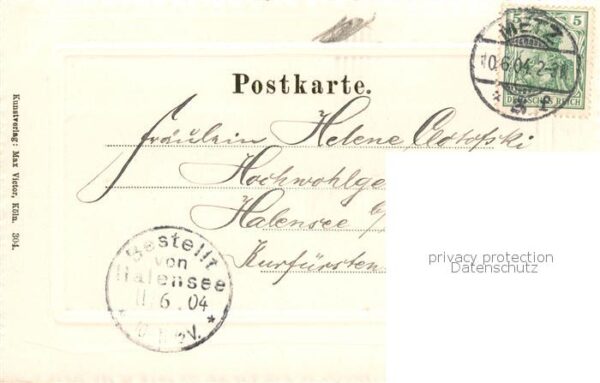 5 5
METZ
10.6.04.2-3N
DEUTSCHES REICH
Postkarte.
Fräulein Helene
Hochwohlge
Halensee b/
Kurfürsten
privacy protection
Datenschutz
Bestellt
von
Halensee
11.6.04
V.
Kunstverlag: Max Victor, Köln. 304.